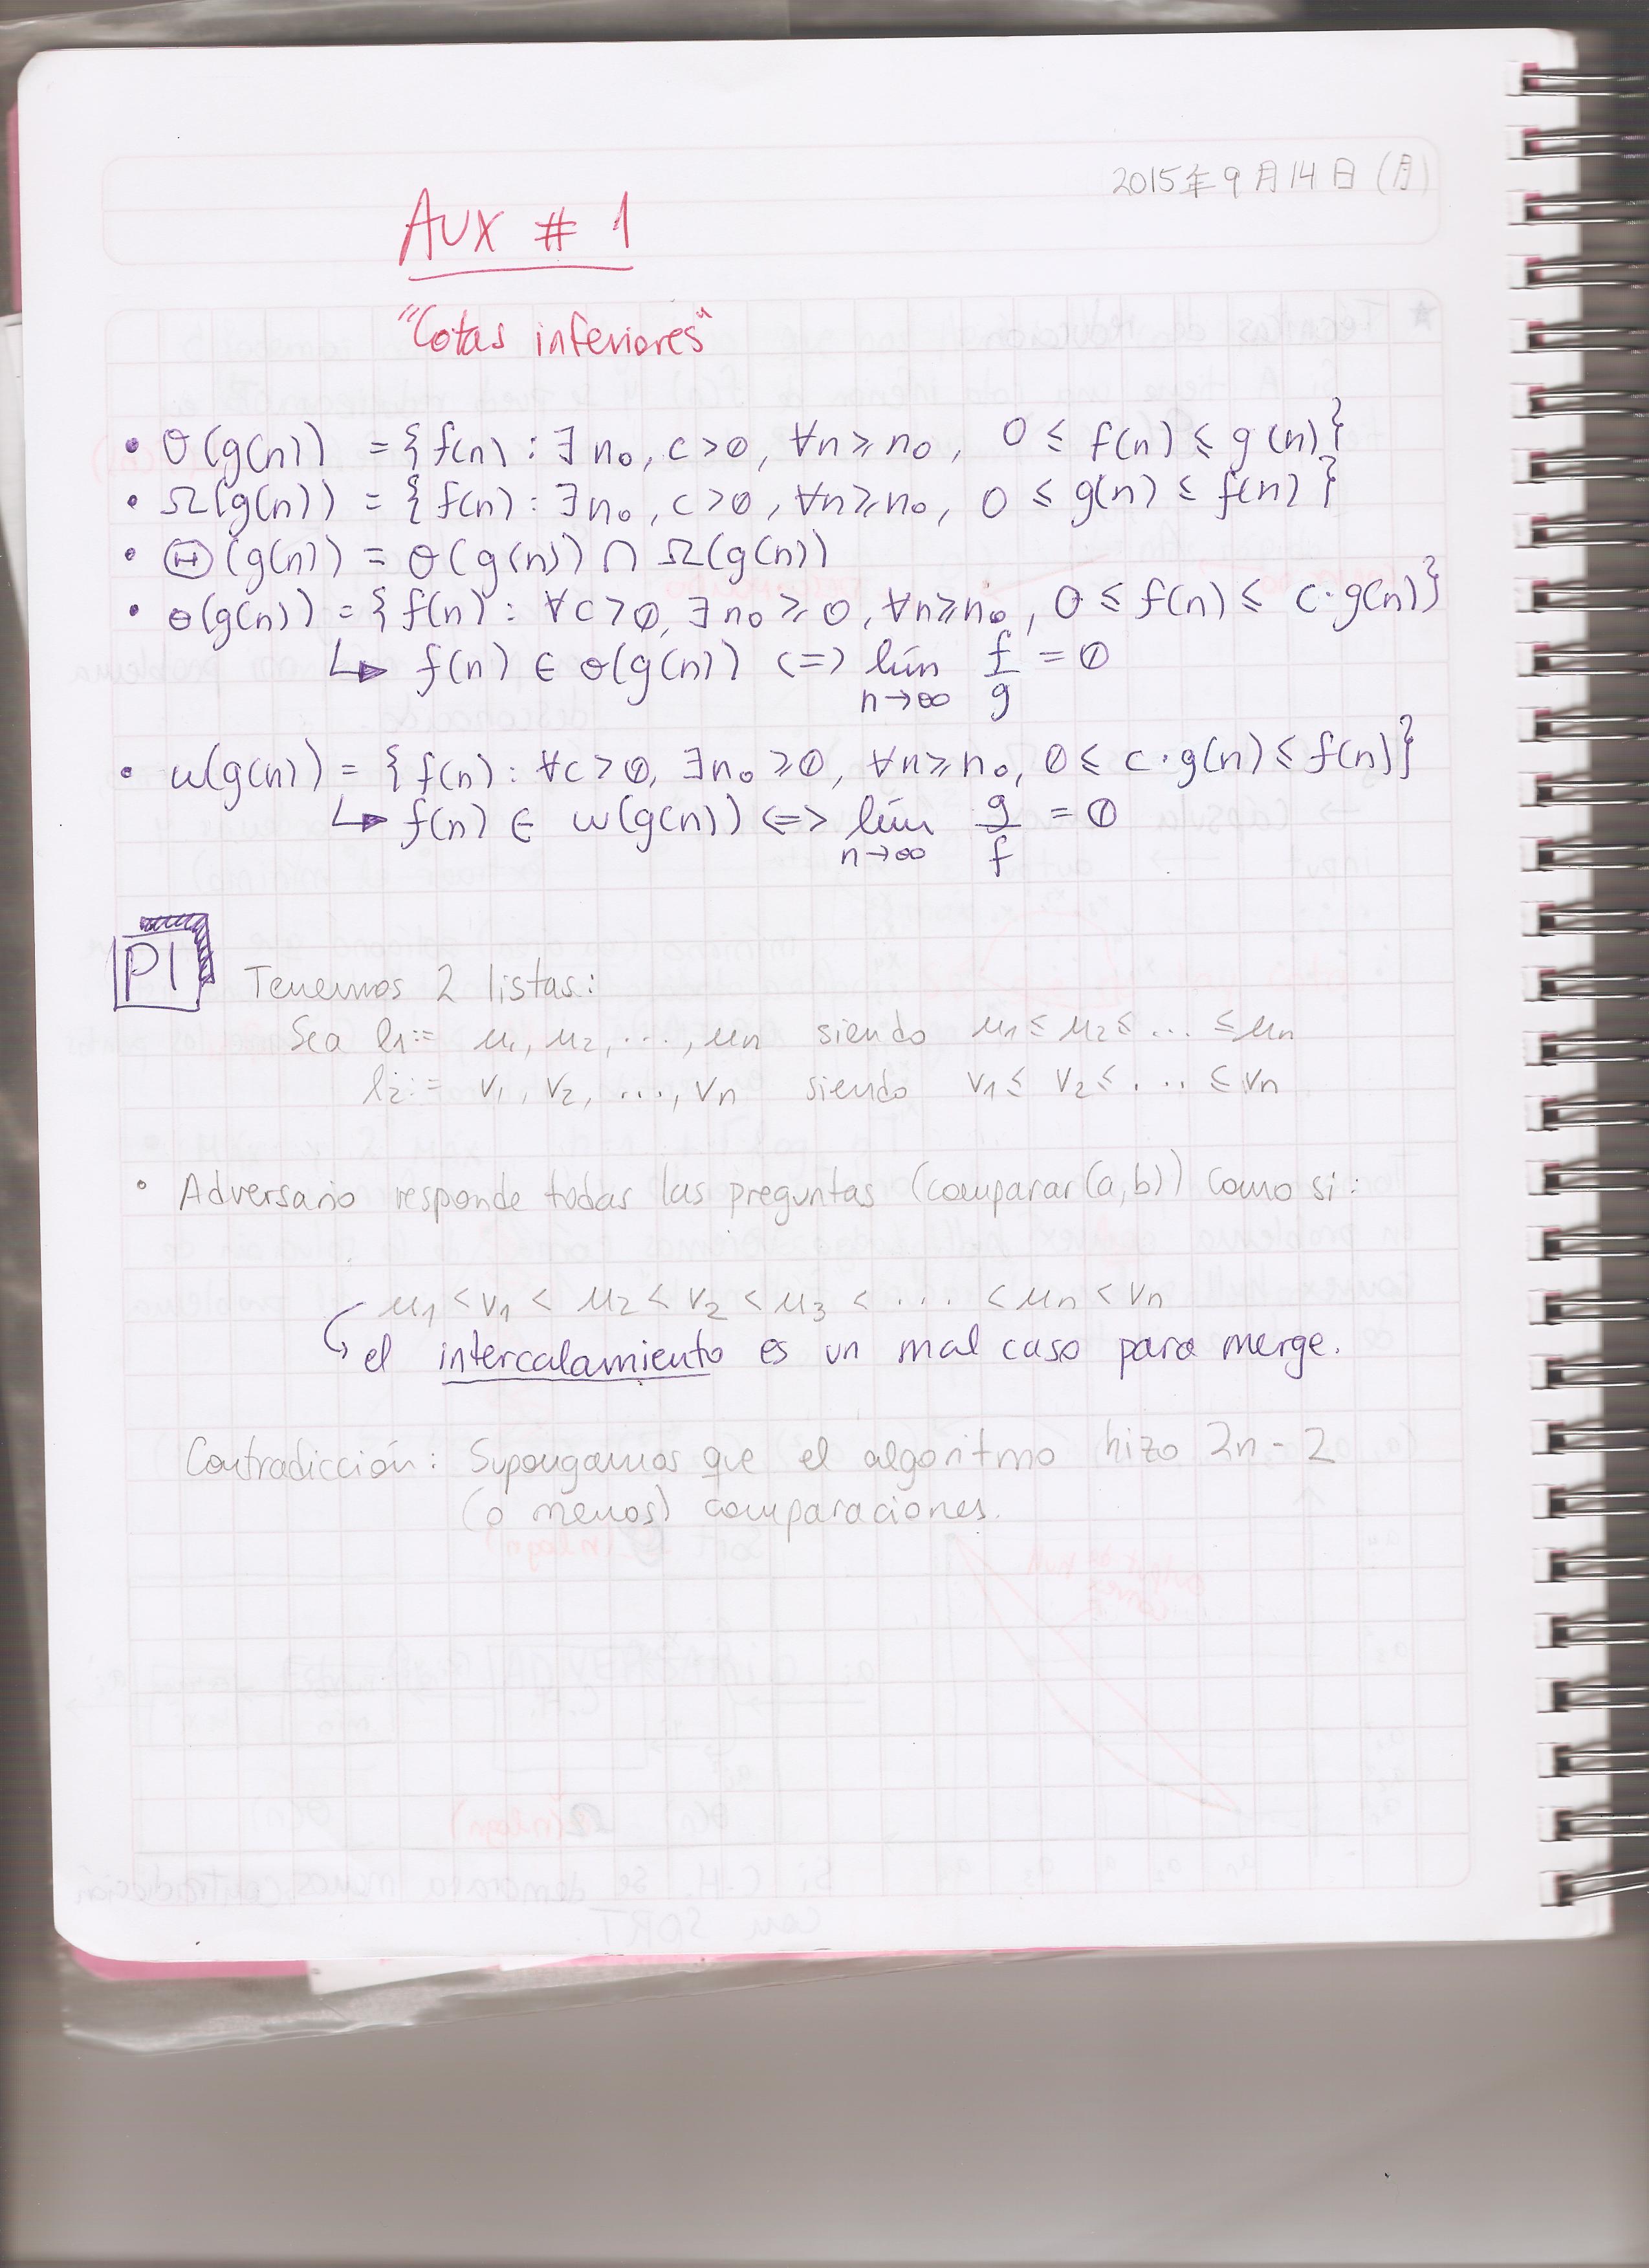 2015年9月14日(月)
AUX # 1
"Cotas inferiores"
• O(g(n)) = {f(n) : ∃ n₀, c > 0, ∀n ≥ n₀, 0 ≤ f(n) ≤ g(n)}
• Ω(g(n)) = {f(n) : ∃ n₀, c > 0, ∀n ≥ n₀, 0 ≤ g(n) ≤ f(n)}
• Θ(g(n)) = O(g(n)) ∩ Ω(g(n))
• o(g(n)) = {f(n) : ∀c > 0, ∃ n₀ ≥ 0, ∀n ≥ n₀, 0 ≤ f(n) ≤ c·g(n)}
↳ f(n) ∈ o(g(n)) <=> lím n→∞ f/g = 0
• ω(g(n)) = {f(n) : ∀c > 0, ∃ n₀ ≥ 0, ∀n ≥ n₀, 0 ≤ c·g(n) ≤ f(n)}
↳ f(n) ∈ ω(g(n)) <=> lím n→∞ g/f = 0
P1
Tenemos 2 listas:
Sea l₁:= μ₁, μ₂, ..., μn siendo μ₁ ≤ μ₂ ≤ ... ≤ μn
l₂:= v₁, v₂, ..., vn siendo v₁ ≤ v₂ ≤ ... ≤ vn
• Adversario responde todas las preguntas (comparar(a,b)) como si:
μ₁ < v₁ < μ₂ < v₂ < μ₃ < ... < μn < vn
↳ el intercalamiento es un mal caso para merge.
Contradicción: Supongamos que el algoritmo hizo 2n-2
(o menos) comparaciones.